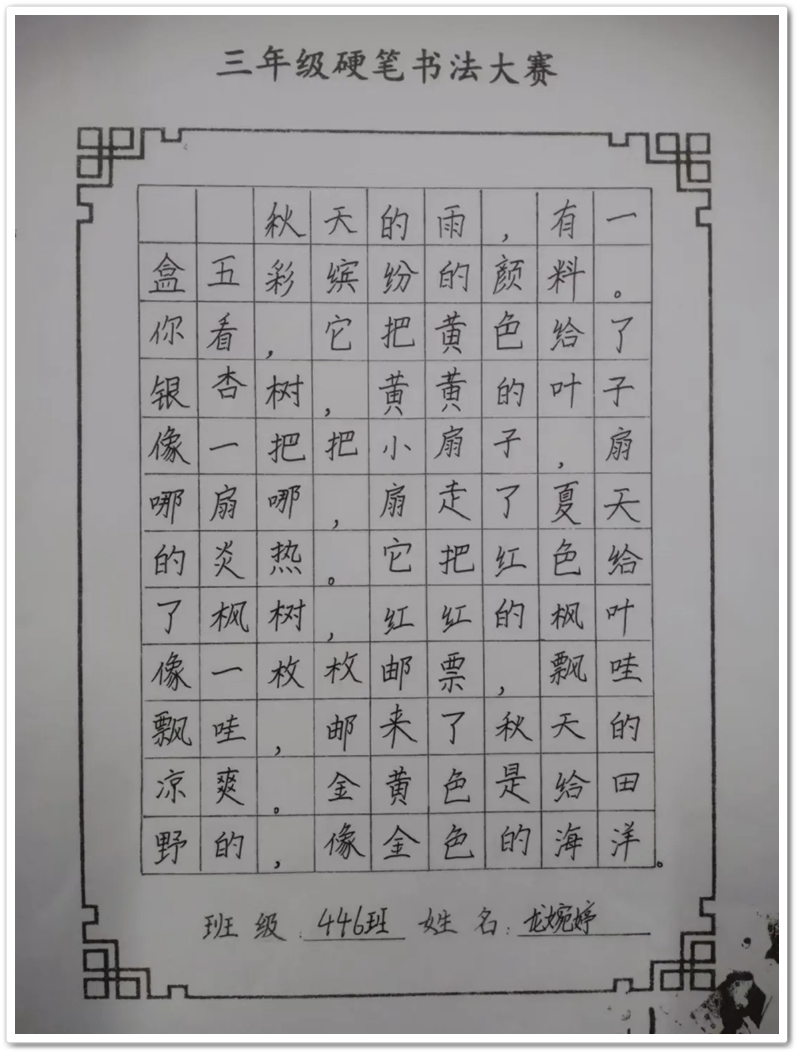 三年级硬笔书法大赛
秋天的雨,有一
盒五彩缤纷的颜料。
你看,它把黄色给了
银杏树,黄黄的叶子
像一把把小扇子,扇
哪扇哪,扇走了夏天
的炎热。它把红色给
了枫树,红红的枫叶
像一枚枚邮票,飘哇
飘哇,邮来了秋天的
凉爽。金黄色是给田
野的,像金色的海洋。
班级:446班 姓名:龙婉婷